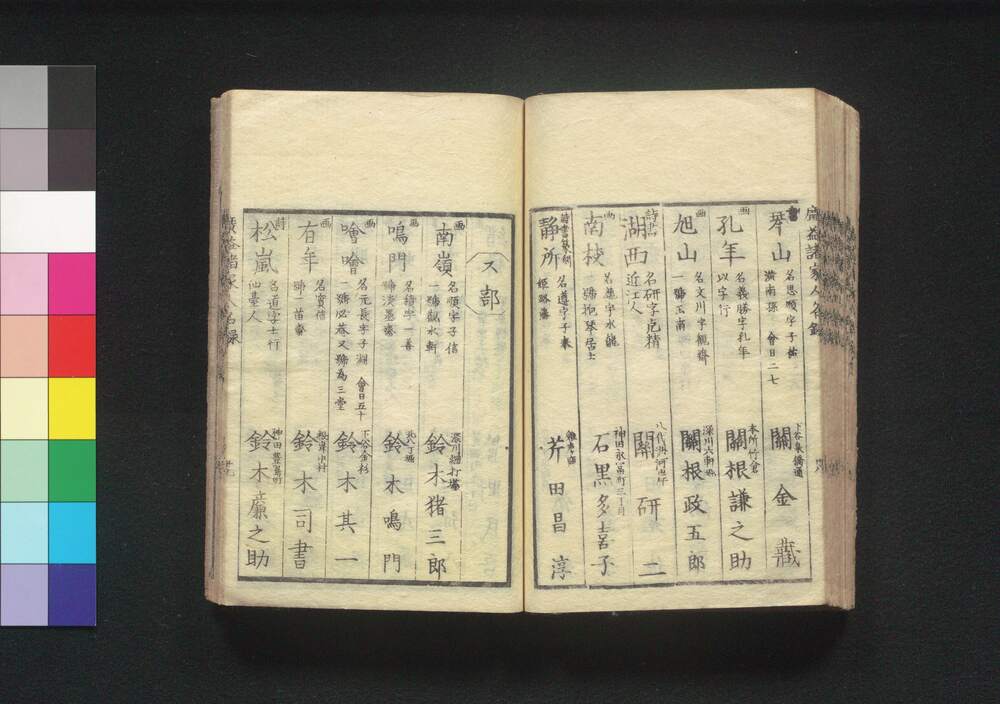 廣益諸家人名録
書
琴山
名思順字子祐
潢南孫 會日二七
下谷集橋通
關 金藏
画
孔年
名義勝字孔年
以字行
本所竹倉
關根謙之助
画
旭山
名文川字觀齋
一號玉南
深川六軒堀
關根政五郎
詩書
湖西
名研字克精
近江人
八代洲河岸
關 研二
画
南棟
名
字水龍
一號抱琴居士
神田永冨町三丁目
石黒多喜子
詩書篆刻
靜所
名遵字子泰
姫路藩
芥田昌淳
ス部
画
南嶺
名順字子信
一號觀水軒
深川網打場
鈴木猪三郎
画
鳴門
名
字一善
號淡墨齋
北八丁堀
鈴木鳴門
画
噲噲
名元長字子淵 會日五十
一號必菴又號為三堂
下谷金杉
鈴木其一
画
有年
名寳信
號一苗齋
根岸中村
鈴木司書
詩
松嵐
名道字士行
仙臺人
神田豊島町
鈴木廉之助
廣益諸家人名録